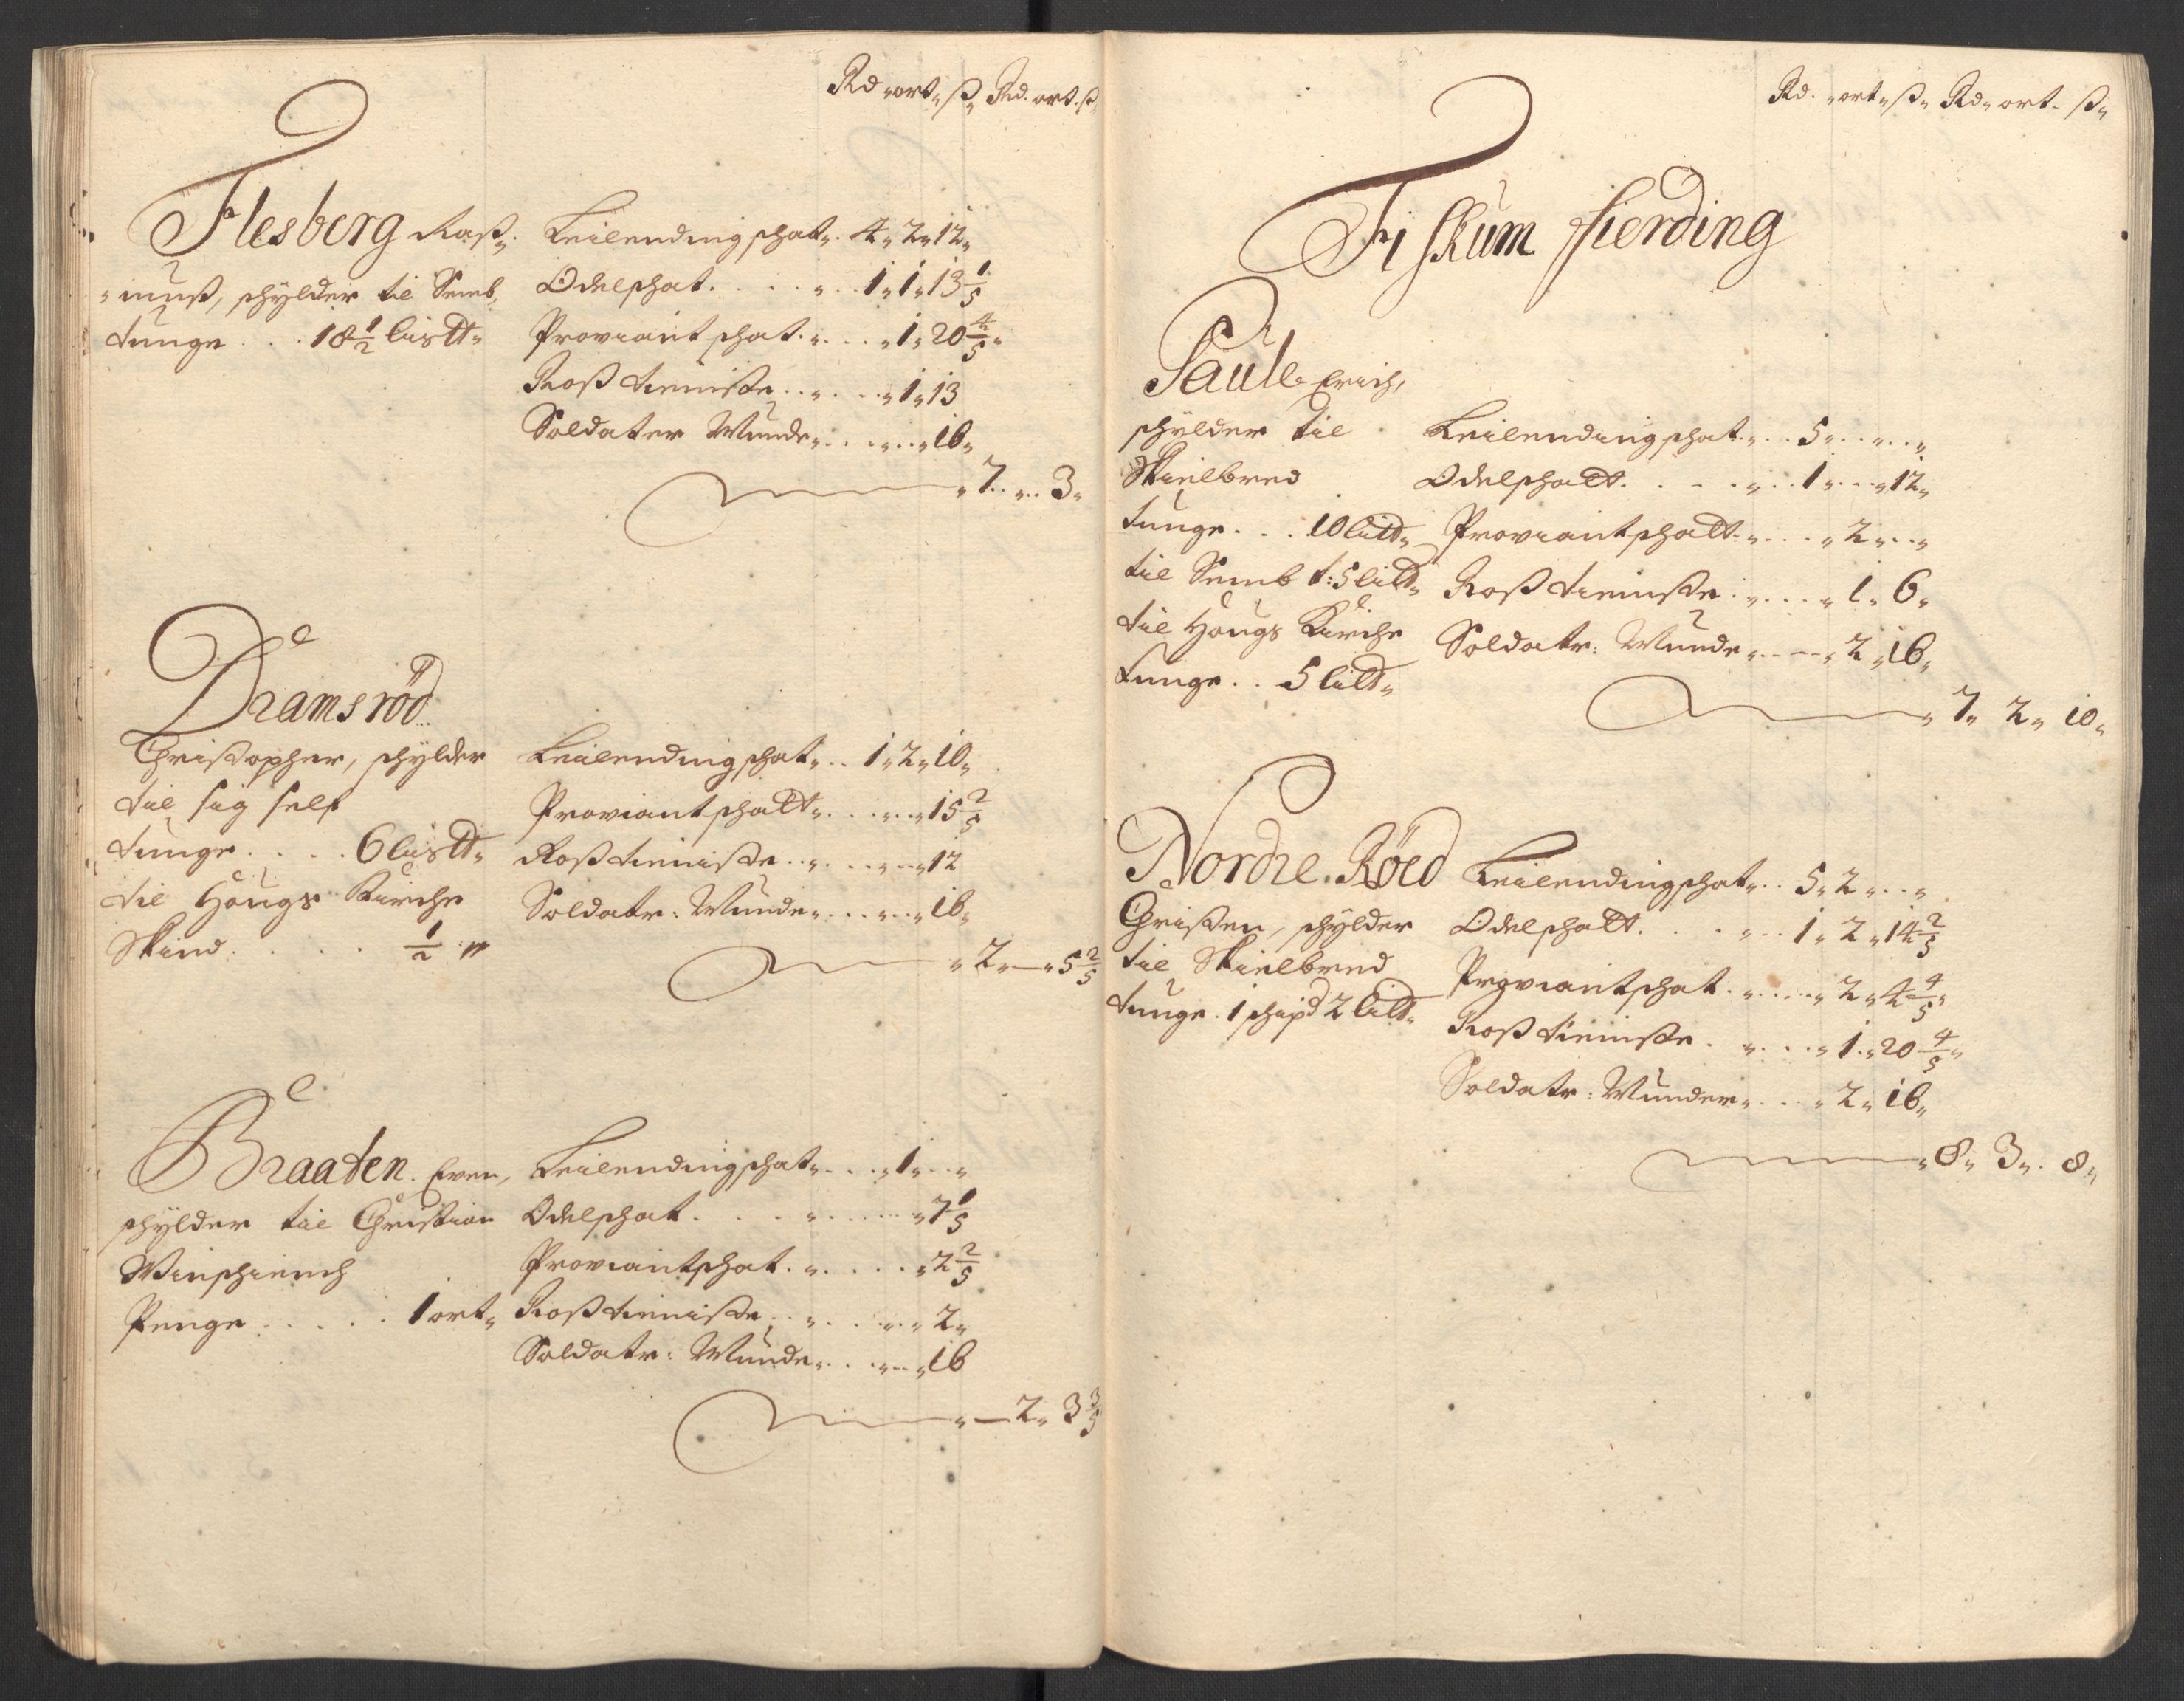 Rd „ ort „ ß „ Rd. ort. ß „
Flesberg Raß„
„muß, schylder til Semb,
tunge . . . 18 1/2 lispd„
Leilendingschat „ . 4 „ 2 „ 12 „
Odelschat . . . . „ . . 1 „ 1 „ 13 1/5
Proviantschat . „ . . . „ 1 „ 20 4/5 „
Roß tieniste . . „ . . . „ 1 „ 13
Soldater Munde „ . . „ . . „ 16 „
„ 7 . „ . . 3 „
Dramsröd
Christopher, schylder
til sig self
tunge . . . . 6 lispd„
til Hougs Kirche
Skind . . . . . 1/2 „
Leilendingschat „ . . 1 „ 2 „ 10 „
Proviantschatt „ . . „ . . „ 15 2/5
Roßtieniste . . „ . . „ — „ 12
Soldatr: Munde „ . . „ . . „ 16 „
„ 2 „ — „ 5 2/5
Braaten. Even,
schylder til Christian
Penge . . . . . 1 ort „
Leilendingschat „ . . . „ 1 „ . . „
Odelschat . . . . „ . . . . „ 7 1/5
Proviantschat . „ . . . . „ 2 2/5
Roßtieniste . . „ . . „ . „ 2 „
Soldatr: Munde „ . . „ . . „ 16
„ — 2 „ 3 3/5
Rd. „ ort „ ß „ Rd „ ort . ß „
Fiskum fierding
Saule Erich,
schylder til
Skielbred
tunge . . . 10 lispd„
til Semb t: 5 lispd„
til Hougs Kirche
tunge . . 5 lispd„
Leilendingschat . „ . . 5 „ . . „ . . „
Odelschatt . . . . „ . . 1 „ . . „ 12 „
Proviantschatt . „ . . . „ 2 „ . . „
Roß tieniste . „ . . . „ 1 „ 6 „
Soldatr: Munde „ . . — „ 2 „ 16 „
„ 7 „ 2 „ 10 „
Nordre. Röed
Christen, schylder
til Skielbred
tunge . 1 schipd 2 lispd„
Leilendingschat „ . . 5 „ 2 „ . . „
Odelschatt . . . „ . . 1 „ 2 „ 14 2/5
Proviantschat . „ . . . „ 2 „ 4 4/5 „
Roß tieniste . „ . . . „ 1 „ 20 4/5 „
Soldatr: Munder „ . . . „ 2 „ 16 „
„ 8 „ 3 „ . 8 „